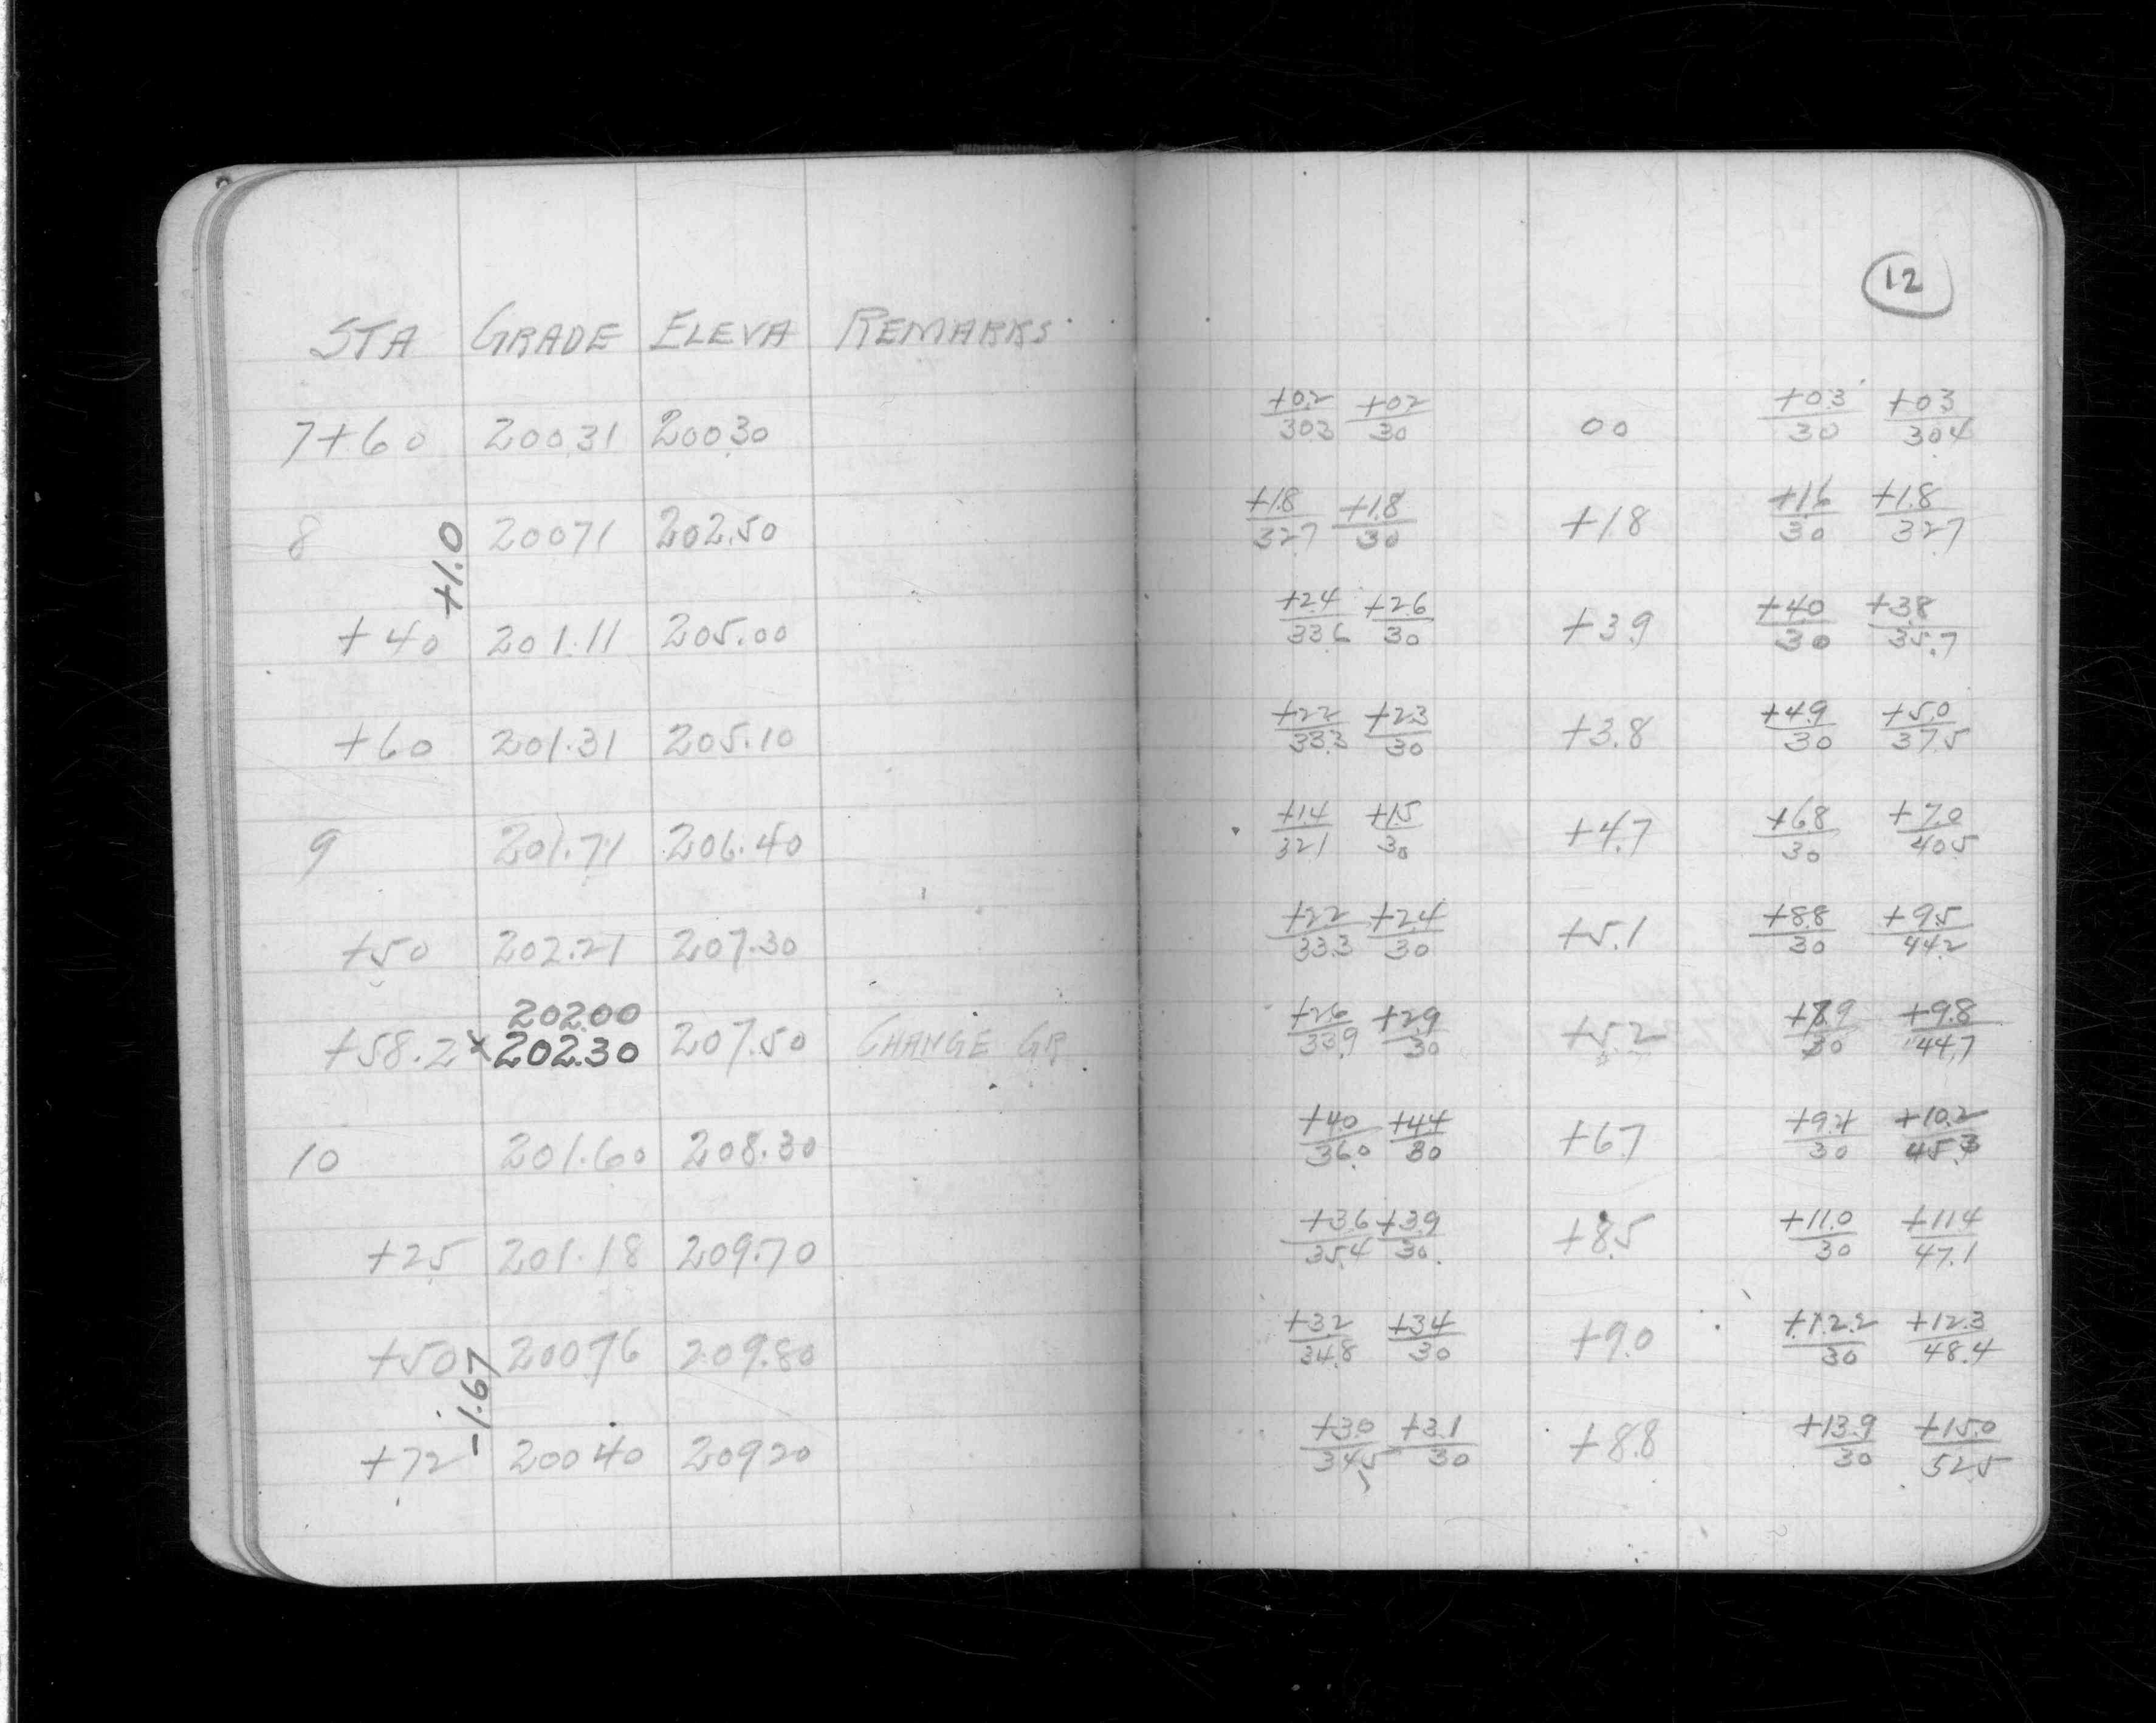 12
STA GRADE ELEVA REMARKS
7+60 200.31 200.30 +0.2/30.3 +0.2/30 00 +0.3/30 +0.3/30.4
8 200.71 202.50 +1.8/32.7 +1.8/30 +1.8 +1.6/30 +1.8/32.7
+1.0
+40 201.11 205.00 +2.4/33.6 +2.6/30 +3.9 +4.0/30 +3.8/35.7
+60 201.31 205.10 +2.2/33.3 +2.3/30 +3.8 +4.9/30 +5.0/37.5
9 201.71 206.40 +1.4/32.1 +1.5/30 +4.7 +6.8/30 +7.0/40.5
+50 202.21 207.30 +2.2/33.3 +2.4/30 +5.1 +8.8/30 +9.5/44.2
202.00
+58.2 x 202.30 207.50 CHANGE GR +2.6/33.9 +2.9/30 +5.2 /30 +9.8/44.7
10 201.60 208.30 +4.0/36.0 +4.4/30 +6.7 +9.4/30 +10.2/45.3
+25 201.18 209.70 +3.6/35.4 +3.9/30 +8.5 +11.0/30 +11.4/47.1
+50 200.76 209.80 +3.2/34.8 +3.4/30 +9.0 +12.2/30 +12.3/48.4
-1.67
+72 200.40 209.20 +3.0/34.5 +3.1/30 +8.8 +13.9/30 +15.0/52.5